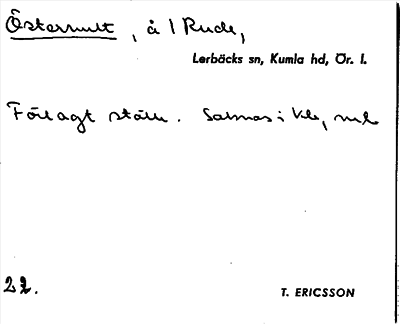 Österrult, å 1 Rude,
Lerbäcks sn, Kumla hd, Ör. l.
Förlagt ställe. Saknas i kb, ml
22.
T. ERICSSON